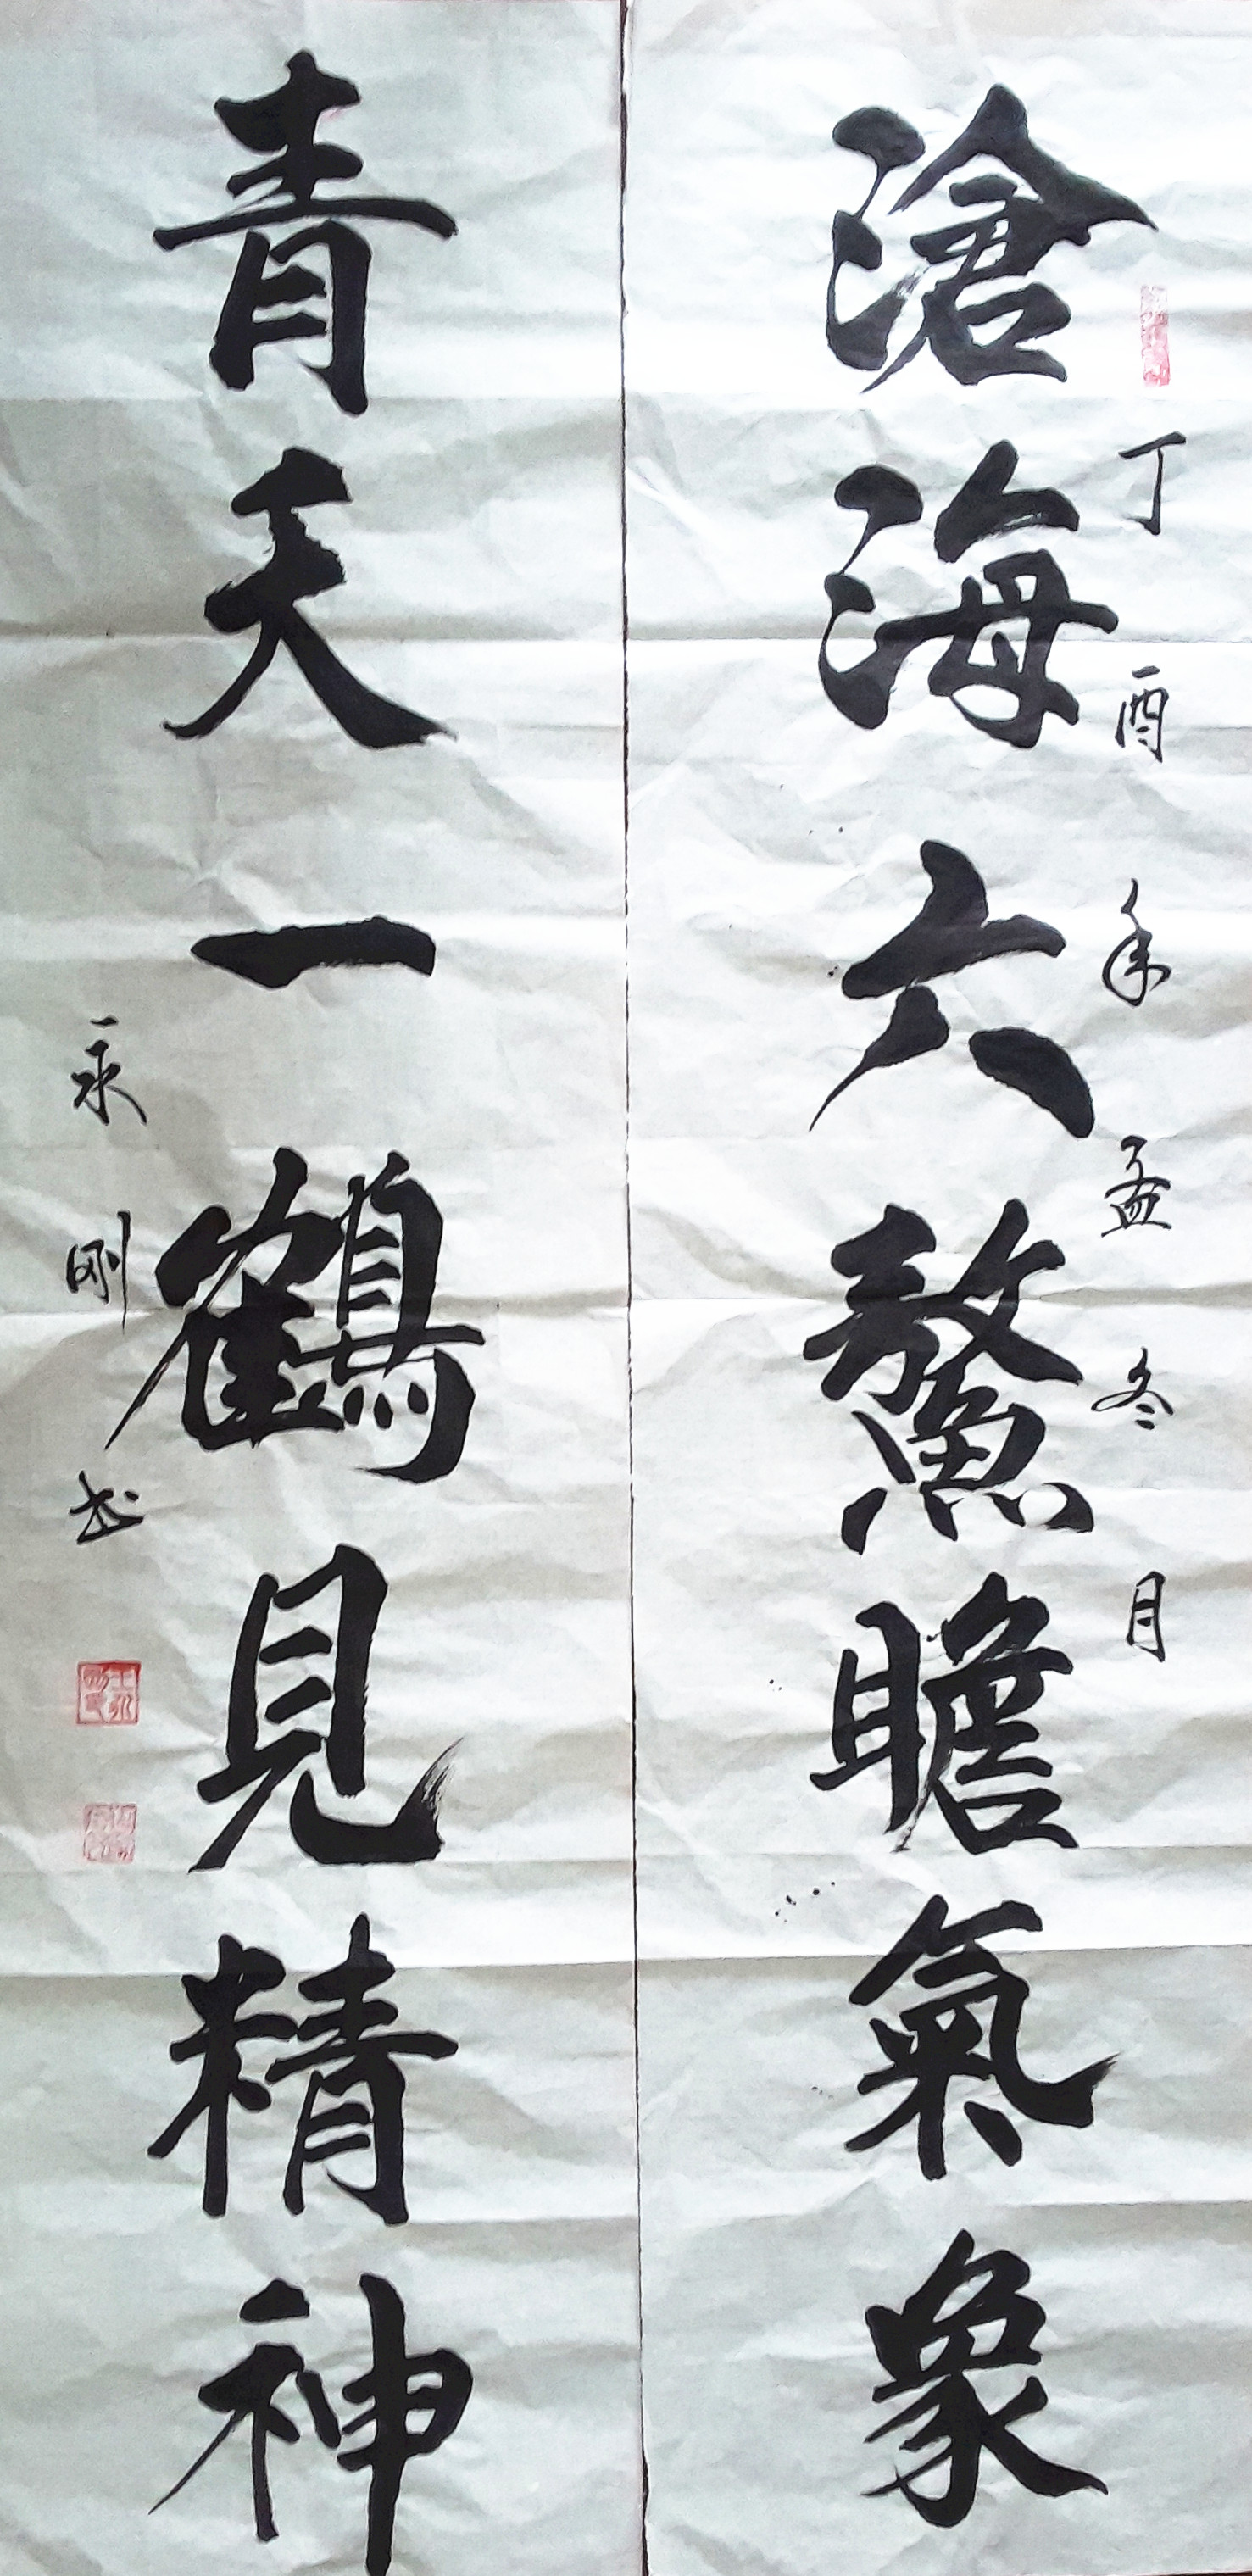 丁酉年孟冬月
滄海六鰲瞻氣象
青天一鶴見精神
永刚书